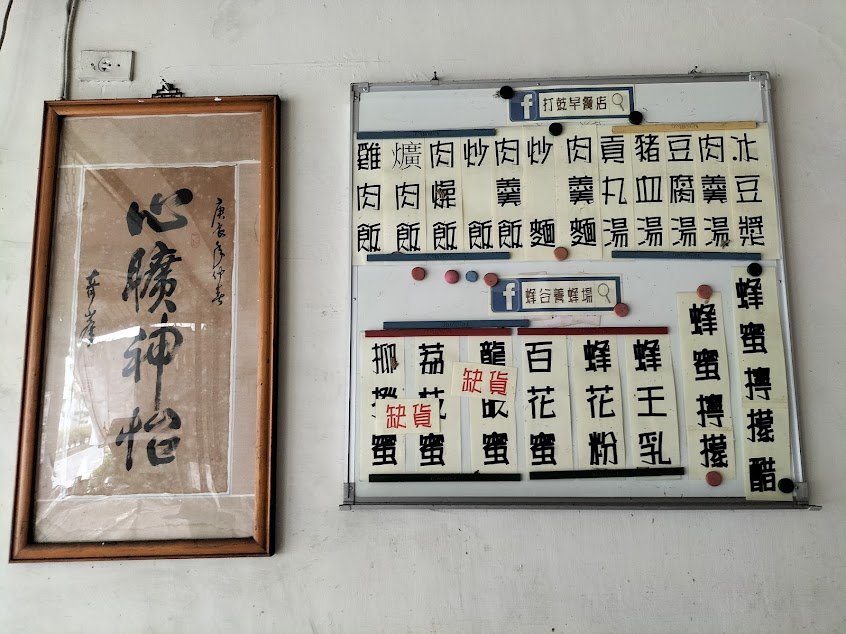 庚辰年仲春
心曠神怡
f 打鼓早餐店
雞肉飯
爌肉飯
肉燥飯
炒飯
肉羹飯
炒麵
肉羹麵
貢丸湯
豬血湯
豆腐湯
肉羹湯
冰豆漿
f 蜂谷養蜂場
蜜
缺貨
荔枝蜜
龍眼蜜
缺貨
百花蜜
蜂花粉
蜂王乳
蜂蜜檸檬
蜂蜜檸檬醋